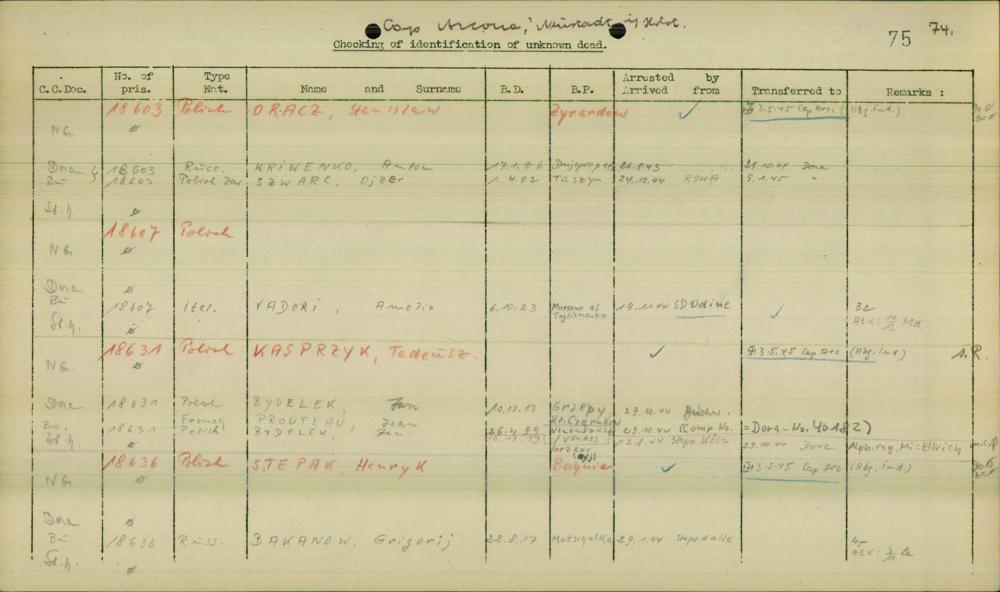 Cap Arcona, Neustadt i/ Holst.
Checking of identification of unknown dead.
75 74.
C.C.Doc. No. of pris. Type Nat. Name and Surname B.D. B.P. Arrested Arrived by from Transferred to Remarks :
18603 Polish ORACZ, Stanislaw Zyrardow ✓ 3.5.45 Cap Arc. (Hbg. ind.)
NG. ø
Dora 18603 Russ. KRIWENKO, Anton 17.1.06 26.8.43 21.10.44 Dora
Bu 18603 Polish Jew SZWARC, Ojzer 1.4.02 Taszyn 24.12.44 RSHA 9.1.45 "
St.h. ø
18607 Polish
NG. ø
Dora ø
Bu 18607 ital. VADORI, Amelio 6.10.23 Morsano al Tagliamento 19.11.44 SD Udine ✓ 32
St.h. ø AEK:
18631 Polish KASPRZYK, Tadeusz ✓ 3.5.45 Cap Arc (Hbg. ind.) s.R.
NG. ø
Dora 18631 Polish BYDELEK, Jan 10.12.13 Grzepy 29.10.44 Buchw.
Bu. 18631 French PROUTEAU, Jean 26.4.99 (Comp. No. = Dora-No. 40182)
St.h. Polish BYDELEK, Jan 10.12.13 Grzepy 12.8.44 Stapo Köln 29.10.44 Dora
18636 Polish STEPAK, Henryk ✓ 3.5.45 Cap Arc (Hbg. ind.)
NG. ø
Dora ø
Bu 18636 Russ. BAKANOW, Grigorij 22.8.17 29.1.44 Stapo Halle 45
St.h. ø AEK: